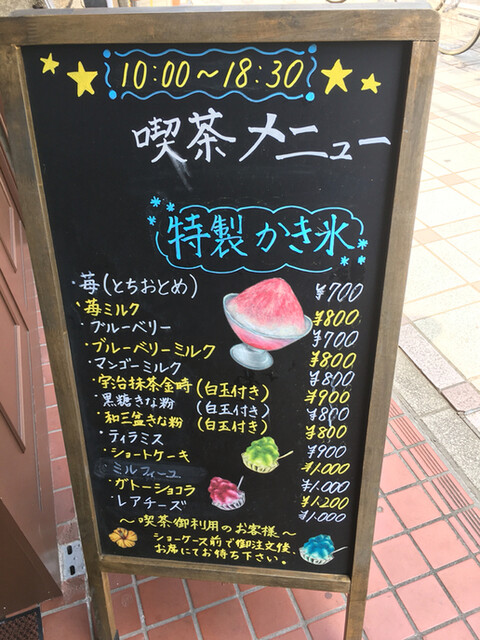 10:00～18:30
喫茶メニュー
特製かき氷
・苺(とちおとめ) ¥700
・苺ミルク ¥800
・ブルーベリー ¥700
・ブルーベリーミルク ¥800
・マンゴーミルク ¥800
・宇治抹茶金時(白玉付き) ¥900
・黒糖きな粉(白玉付き) ¥800
・和三盆きな粉(白玉付き) ¥800
・ティラミス ¥900
・ショートケーキ ¥1.000
・ミルフィーユ ¥1.000
・ガトーショコラ ¥1.200
・レアチーズ ¥1.000
～喫茶御利用のお客様～
ショーケース前で御注文後、
お席にてお待ち下さい。